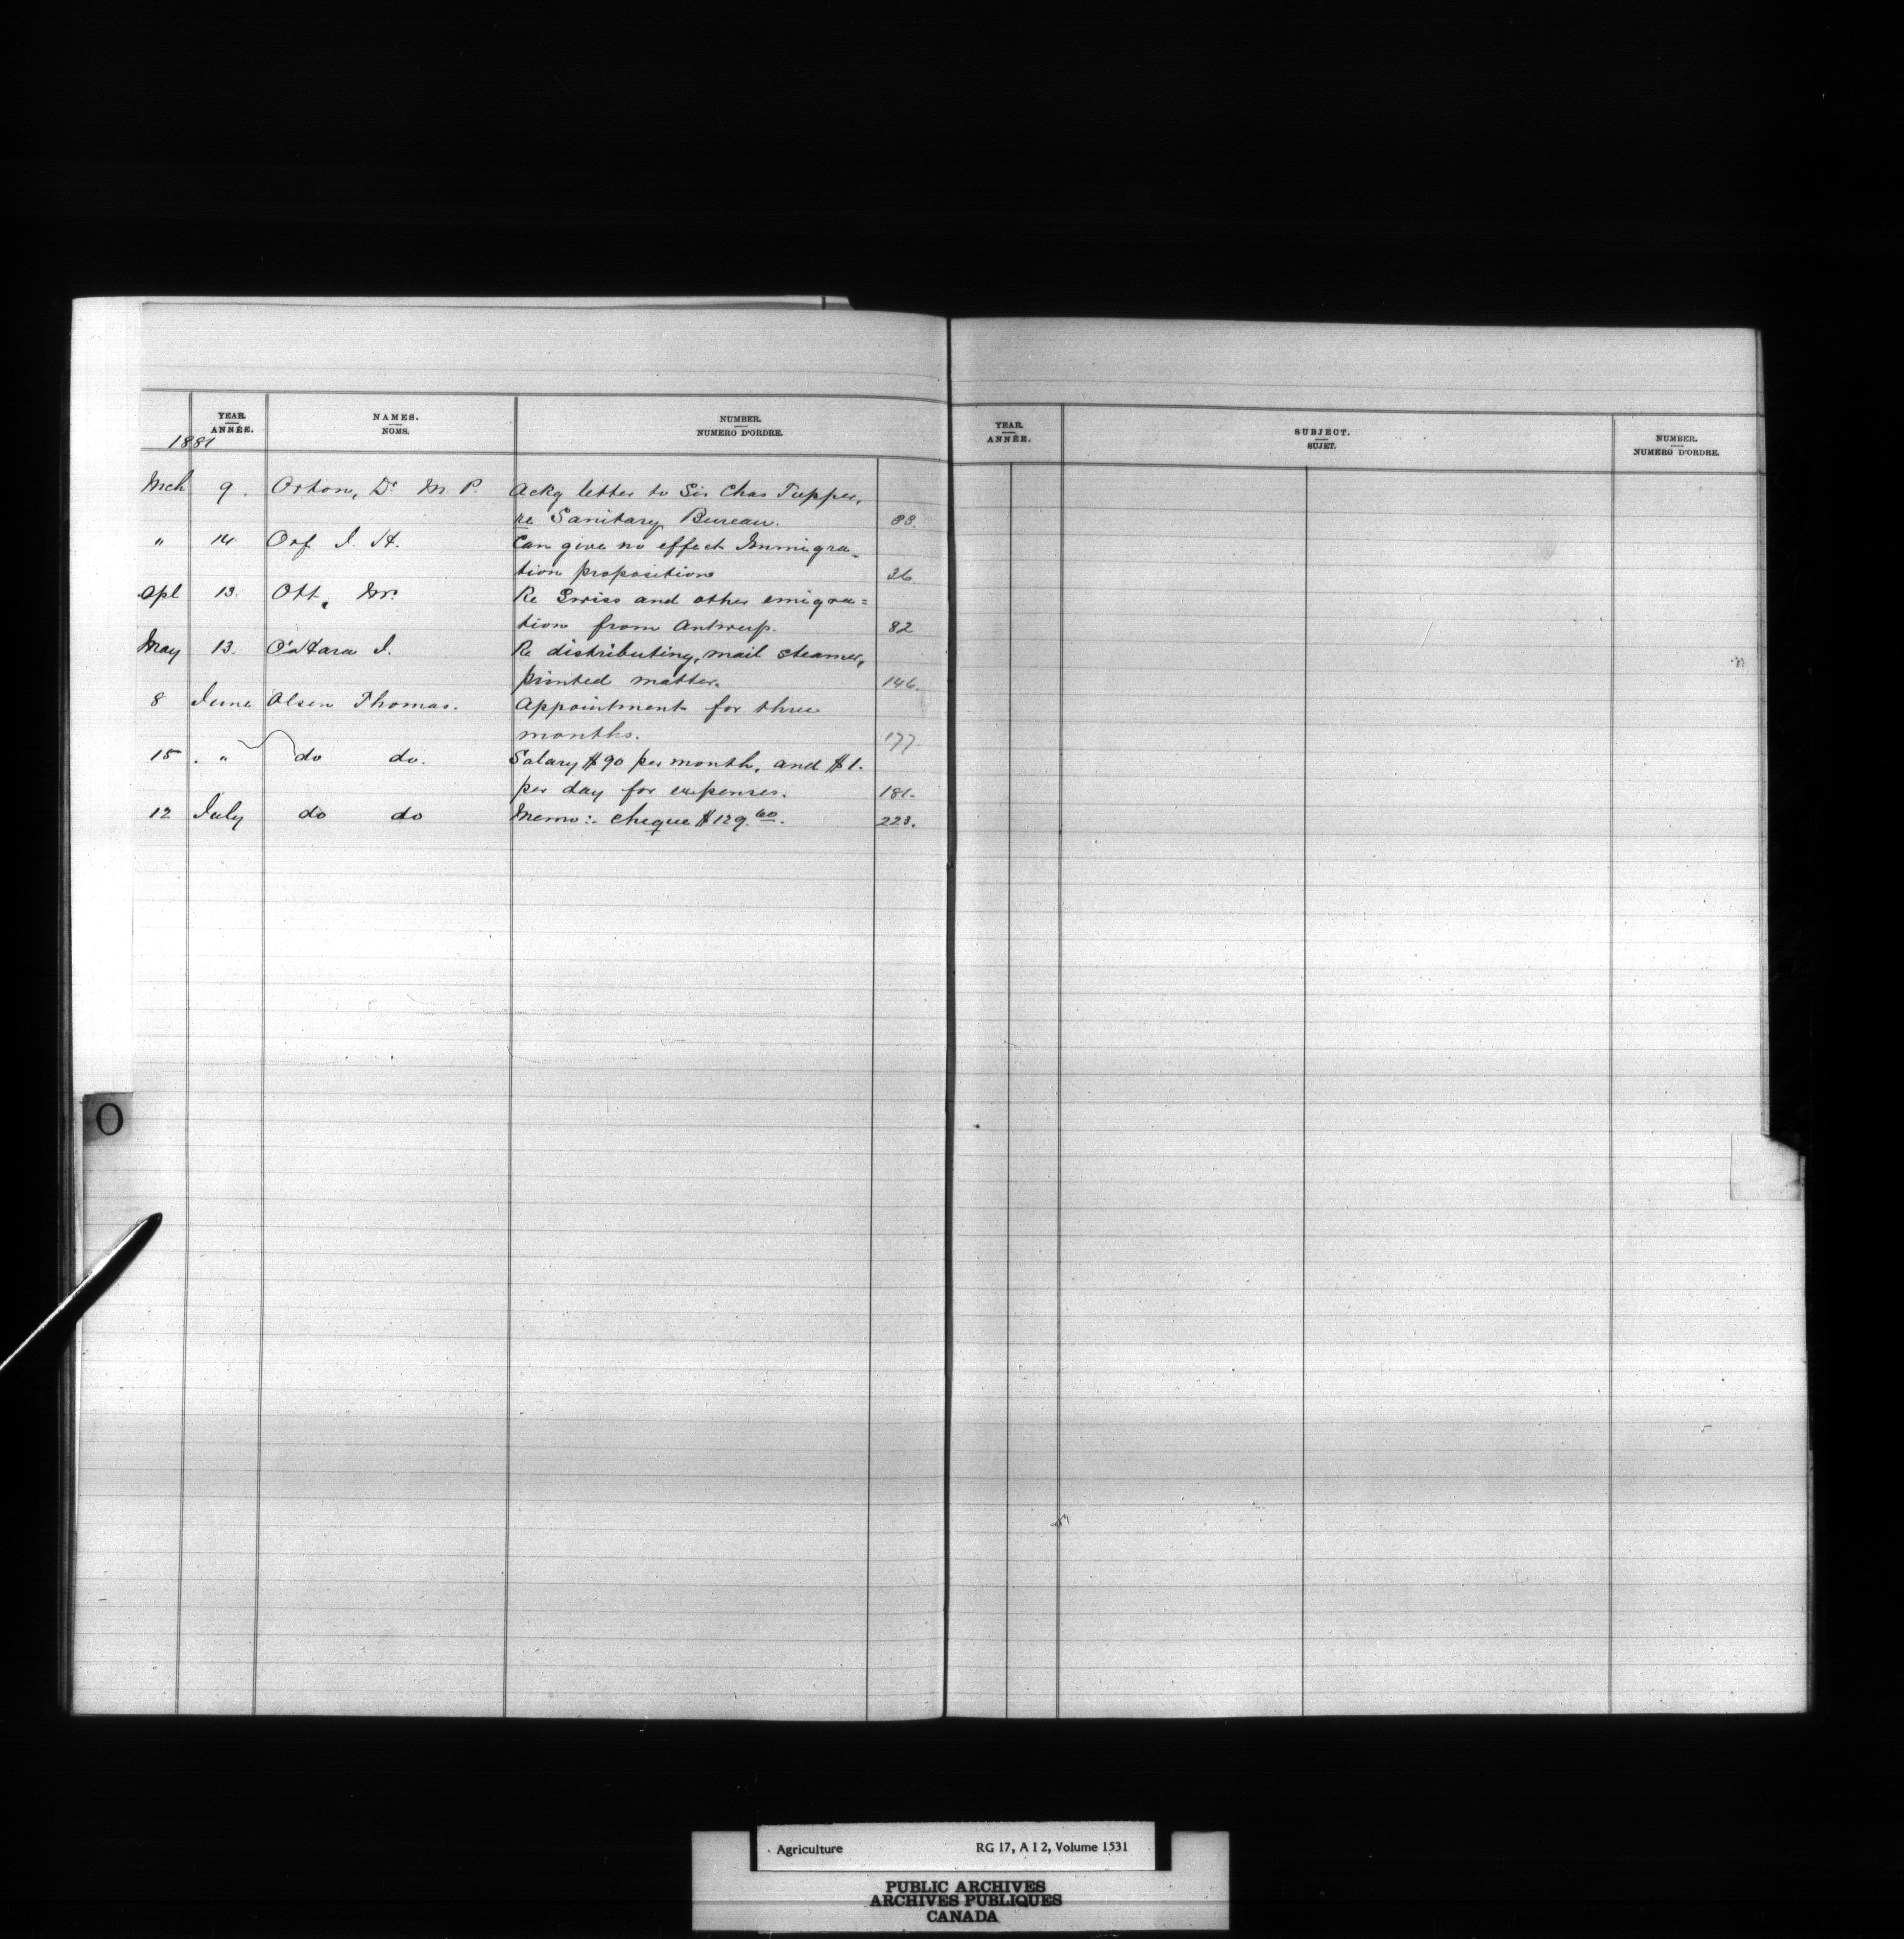 YEAR. NAMES. NUMBER.
ANNÉE. NOMS. NUMERO D'ORDRE.
1881
Mch 9. Orton, Dr M. P. Ackg letter to Sir Chas Tupper,
re Sanitary Bureau. 33.
" 14 Orf I. H. Can give no effect Immigra-
tion proposition 36
Apl 13. Ott, Mr. Re Swiss and other emigra=
tion from Antwerp. 82
May 13. O'Hara I. Re distributing, mail steamer,
printed matter. 146.
8 June Olsen Thomas. Appointment for three
months. 177
15 " do do. Salary $90 per month, and $1.
per day for expenses. 181.
12 July do do Memo:- cheque $129.60. 223.
O
YEAR. SUBJECT. NUMBER.
ANNÉE. SUJET. NUMERO D'ORDRE.
Agriculture RG 17, A I 2, Volume 1531
PUBLIC ARCHIVES
ARCHIVES PUBLIQUES
CANADA